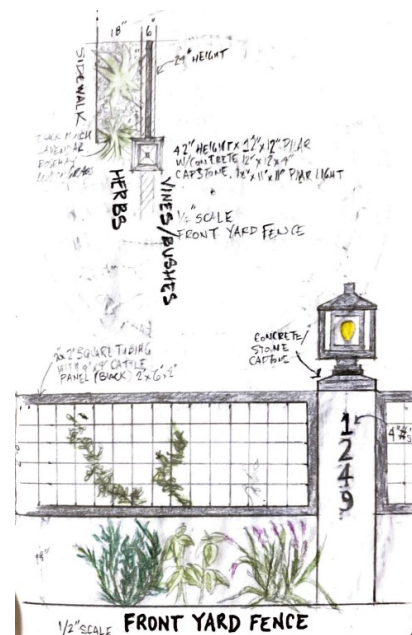 18" 6"
SIDEWALK
29" HEIGHT
42" HEIGHT X 12" X 12" PILAR
W/CONCRETE 12" X 12" X 4"
CAPSTONE, X 11" X 11" PILAR LIGHT
LAVENDAR
HERBS
VINES/BUSHES
1/2" SCALE
FRONT YARD FENCE
CONCRETE/
STONE
CAPSTONE
2x2" SQUARE TUBING
WITH CATTLE
PANEL (BLACK)
1
2
4
9
1/2" SCALE FRONT YARD FENCE